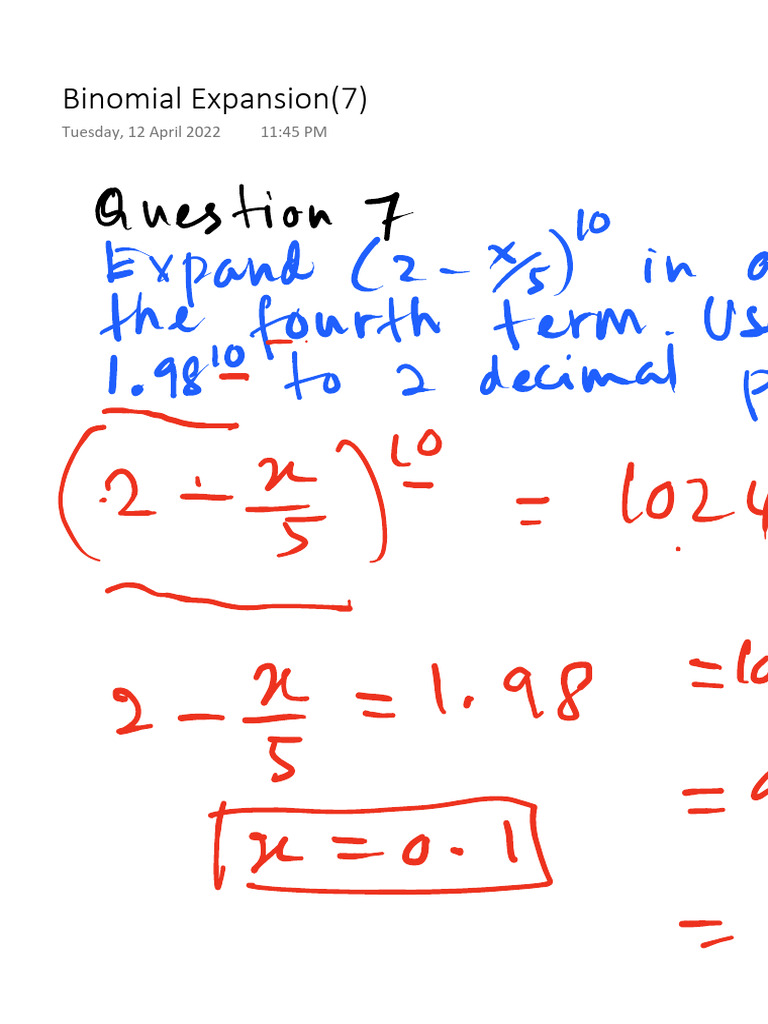 Binomial Expansion(7)
Tuesday, 12 April 2022 11:45 PM
Question 7
Expand (2 - x/5)^10 in
the fourth term. Us
1.98^10 to 2 decimal p
(2 - x/5)^10 = 1024
2 - x/5 = 1.98
x = 0.1
= 10
=
=